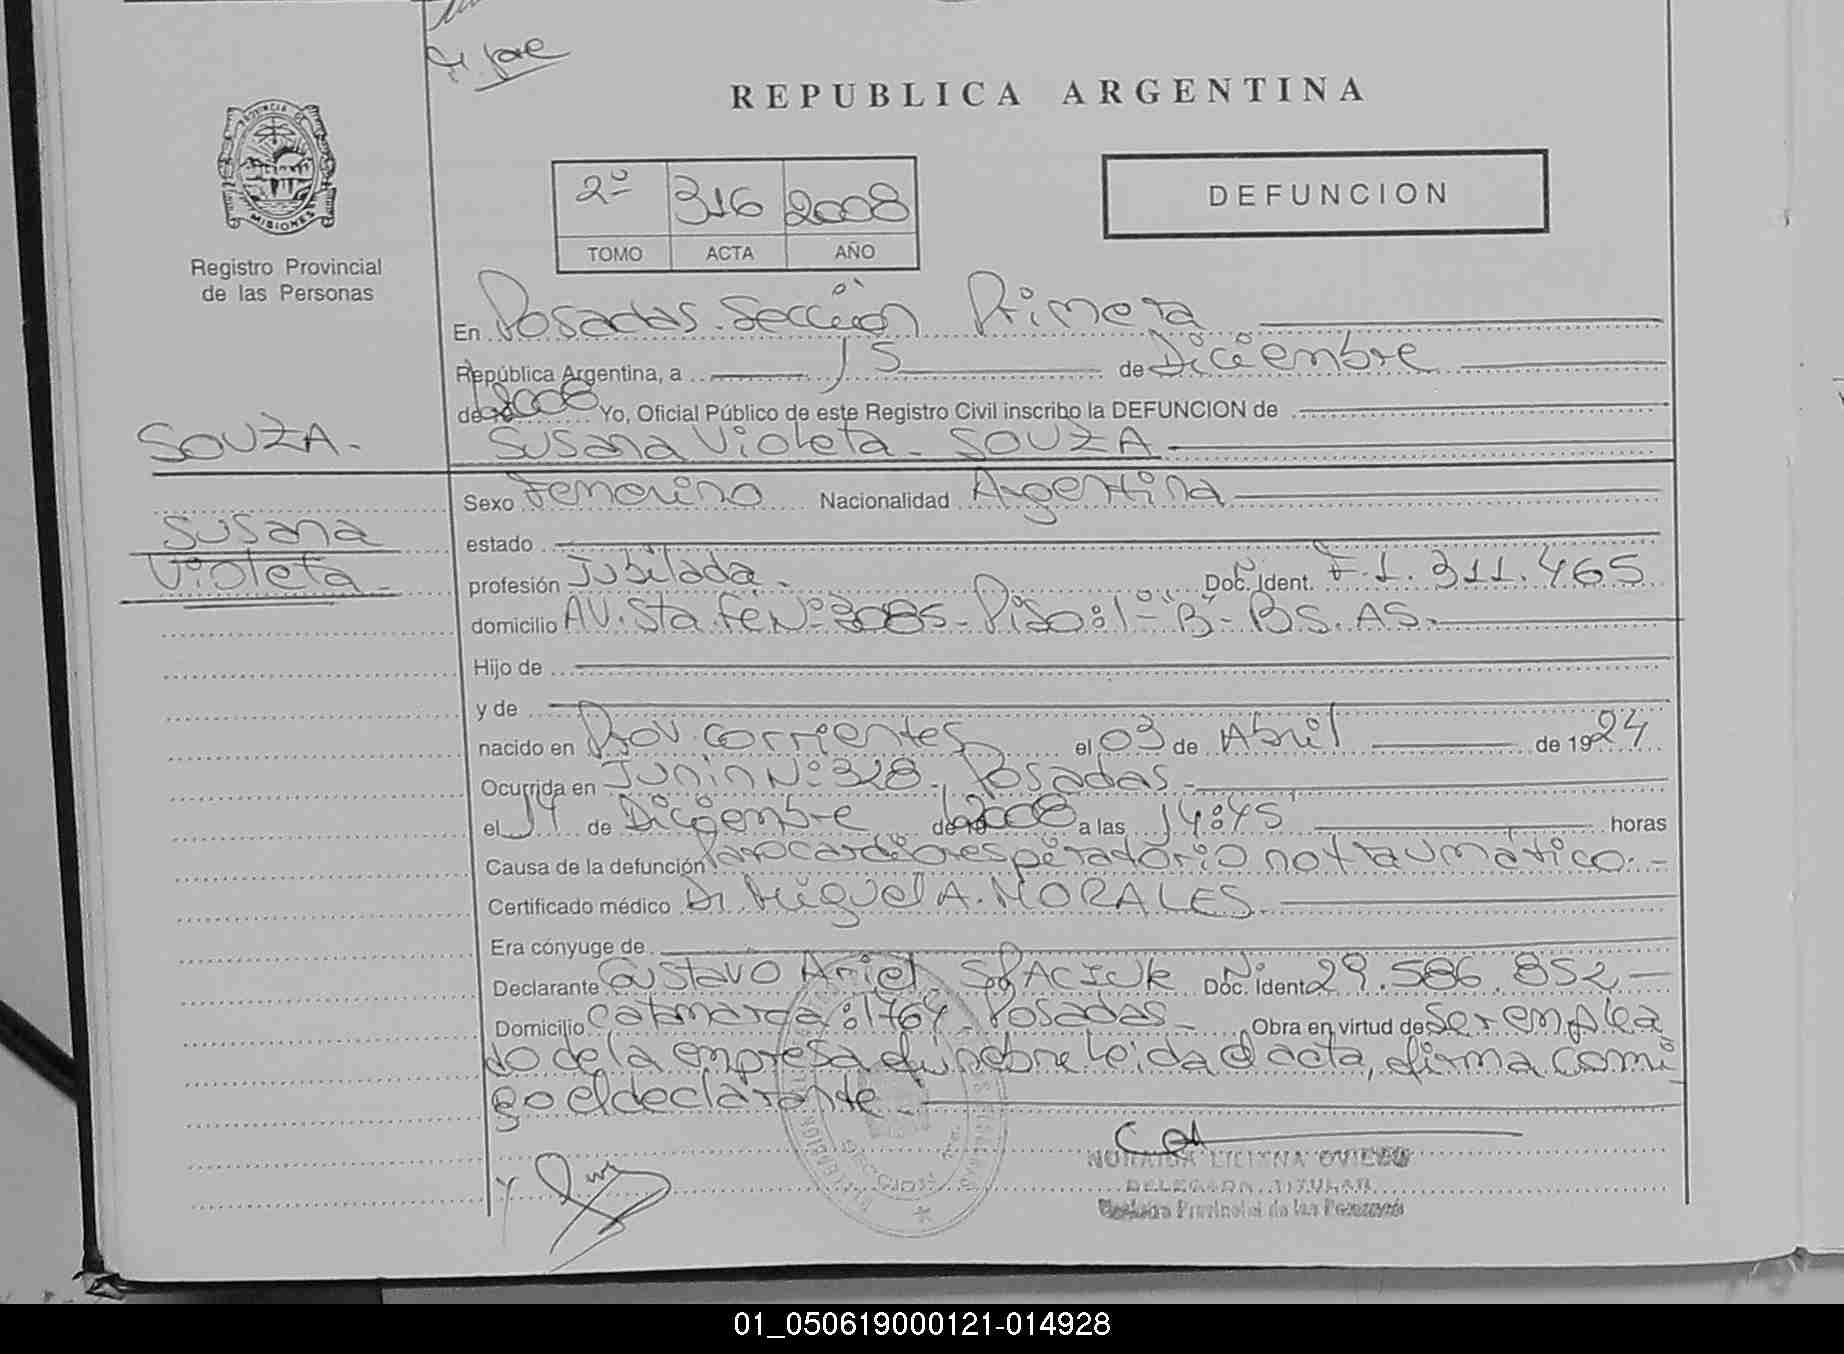 REPUBLICA ARGENTINA
PROVINCIA DE
MISIONES
Registro Provincial
de las Personas
2º 316 2008
TOMO ACTA AÑO
DEFUNCION
En Posadas. Sección Primera
República Argentina, a 15 de Diciembre
de 2008 Yo, Oficial Público de este Registro Civil inscribo la DEFUNCION de
SOUZA.
Susana Violeta. SOUZA
Susana
Violeta.
Sexo Femenino Nacionalidad Argentina
estado
profesión Jubilada. Doc. Ident. Nº F. 1.311.465
domicilio AV. Sta Fé Nº 3085. Piso: 1 - "B" - BS. AS.
Hijo de
y de
nacido en Prov. Corrientes el 03 de Abril de 1924
Ocurrida en Junín Nº 328. Posadas.
el 14 de Diciembre de 2008 a las 14:45' horas
Causa de la defunción Paro cardiorespiratorio no traumático. -
Certificado médico Dr Miguel A. MORALES.
Era cónyuge de
Declarante Gustavo Ariel SPACIUK Doc. Ident. Nº 29.586.852
Domicilio Catamarca: 1764 Posadas. Obra en virtud de ser emplea
do de la empresa fúnebre Leida el acta, firma conmi
go el declarante.
SECCION
LILIANA OVIEDO
DELEGADA TITULAR
Registro Provincial de las Personas
01_050619000121-014928